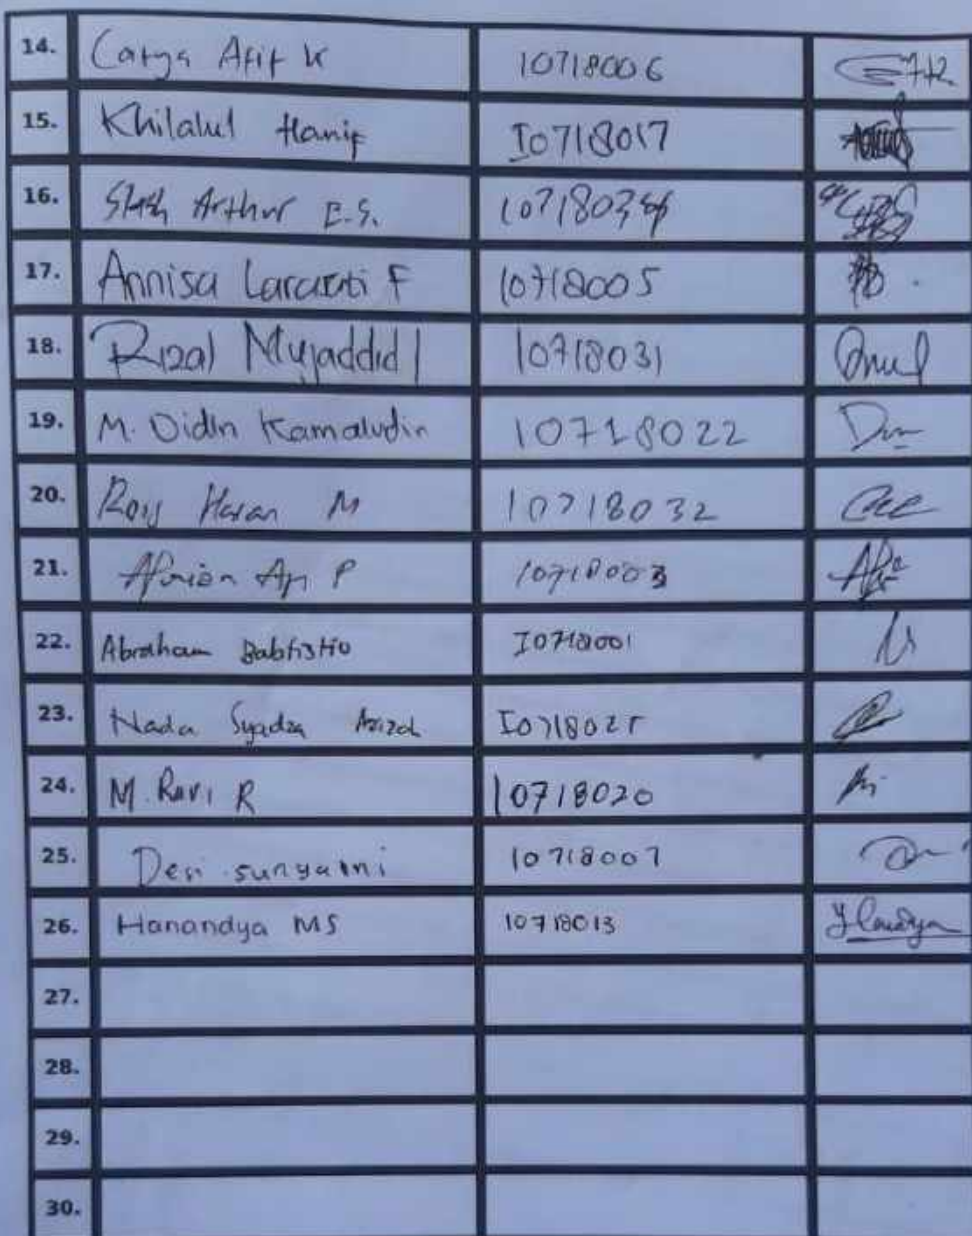 14. Carya Afif K 10718006
15. Khilalul Hanif I0718017
16. Arthur E.S.
17. Annisa Lararati F 10718005
18. Rizal Mujaddid I 10718031
19. M. Oidin Kamaludin 10718022
20. Roiy Hasan M 10718032
21. P 10718003
22. Abraham Babtistio I0718001
23. Nada Syadza Azizah I0718025
24. M. Ravi R 10718020
25. Desi sunyami 10718007
26. Hanandya MS 10718013
27.
28.
29.
30.